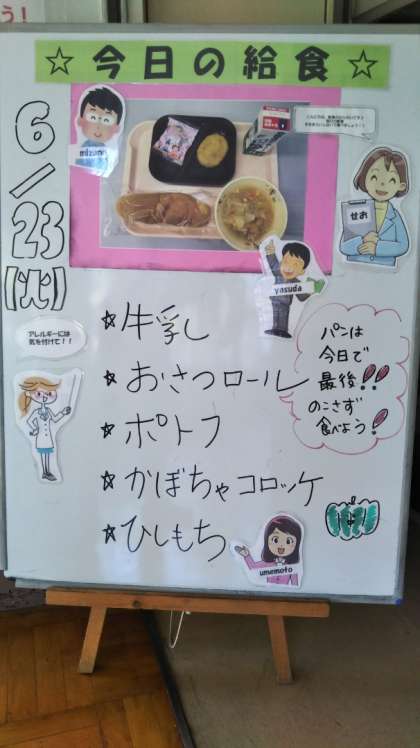 う！
☆今日の給食☆
6/23
【火】
mizuno
せお
yasuda
アレルギーには
気を付けて！！
☆牛乳
☆おさつロール
☆ポトフ
☆かぼちゃコロッケ
☆ひしもち
パンは
今日で
最後!!
のこさず
食べよう!
umemoto